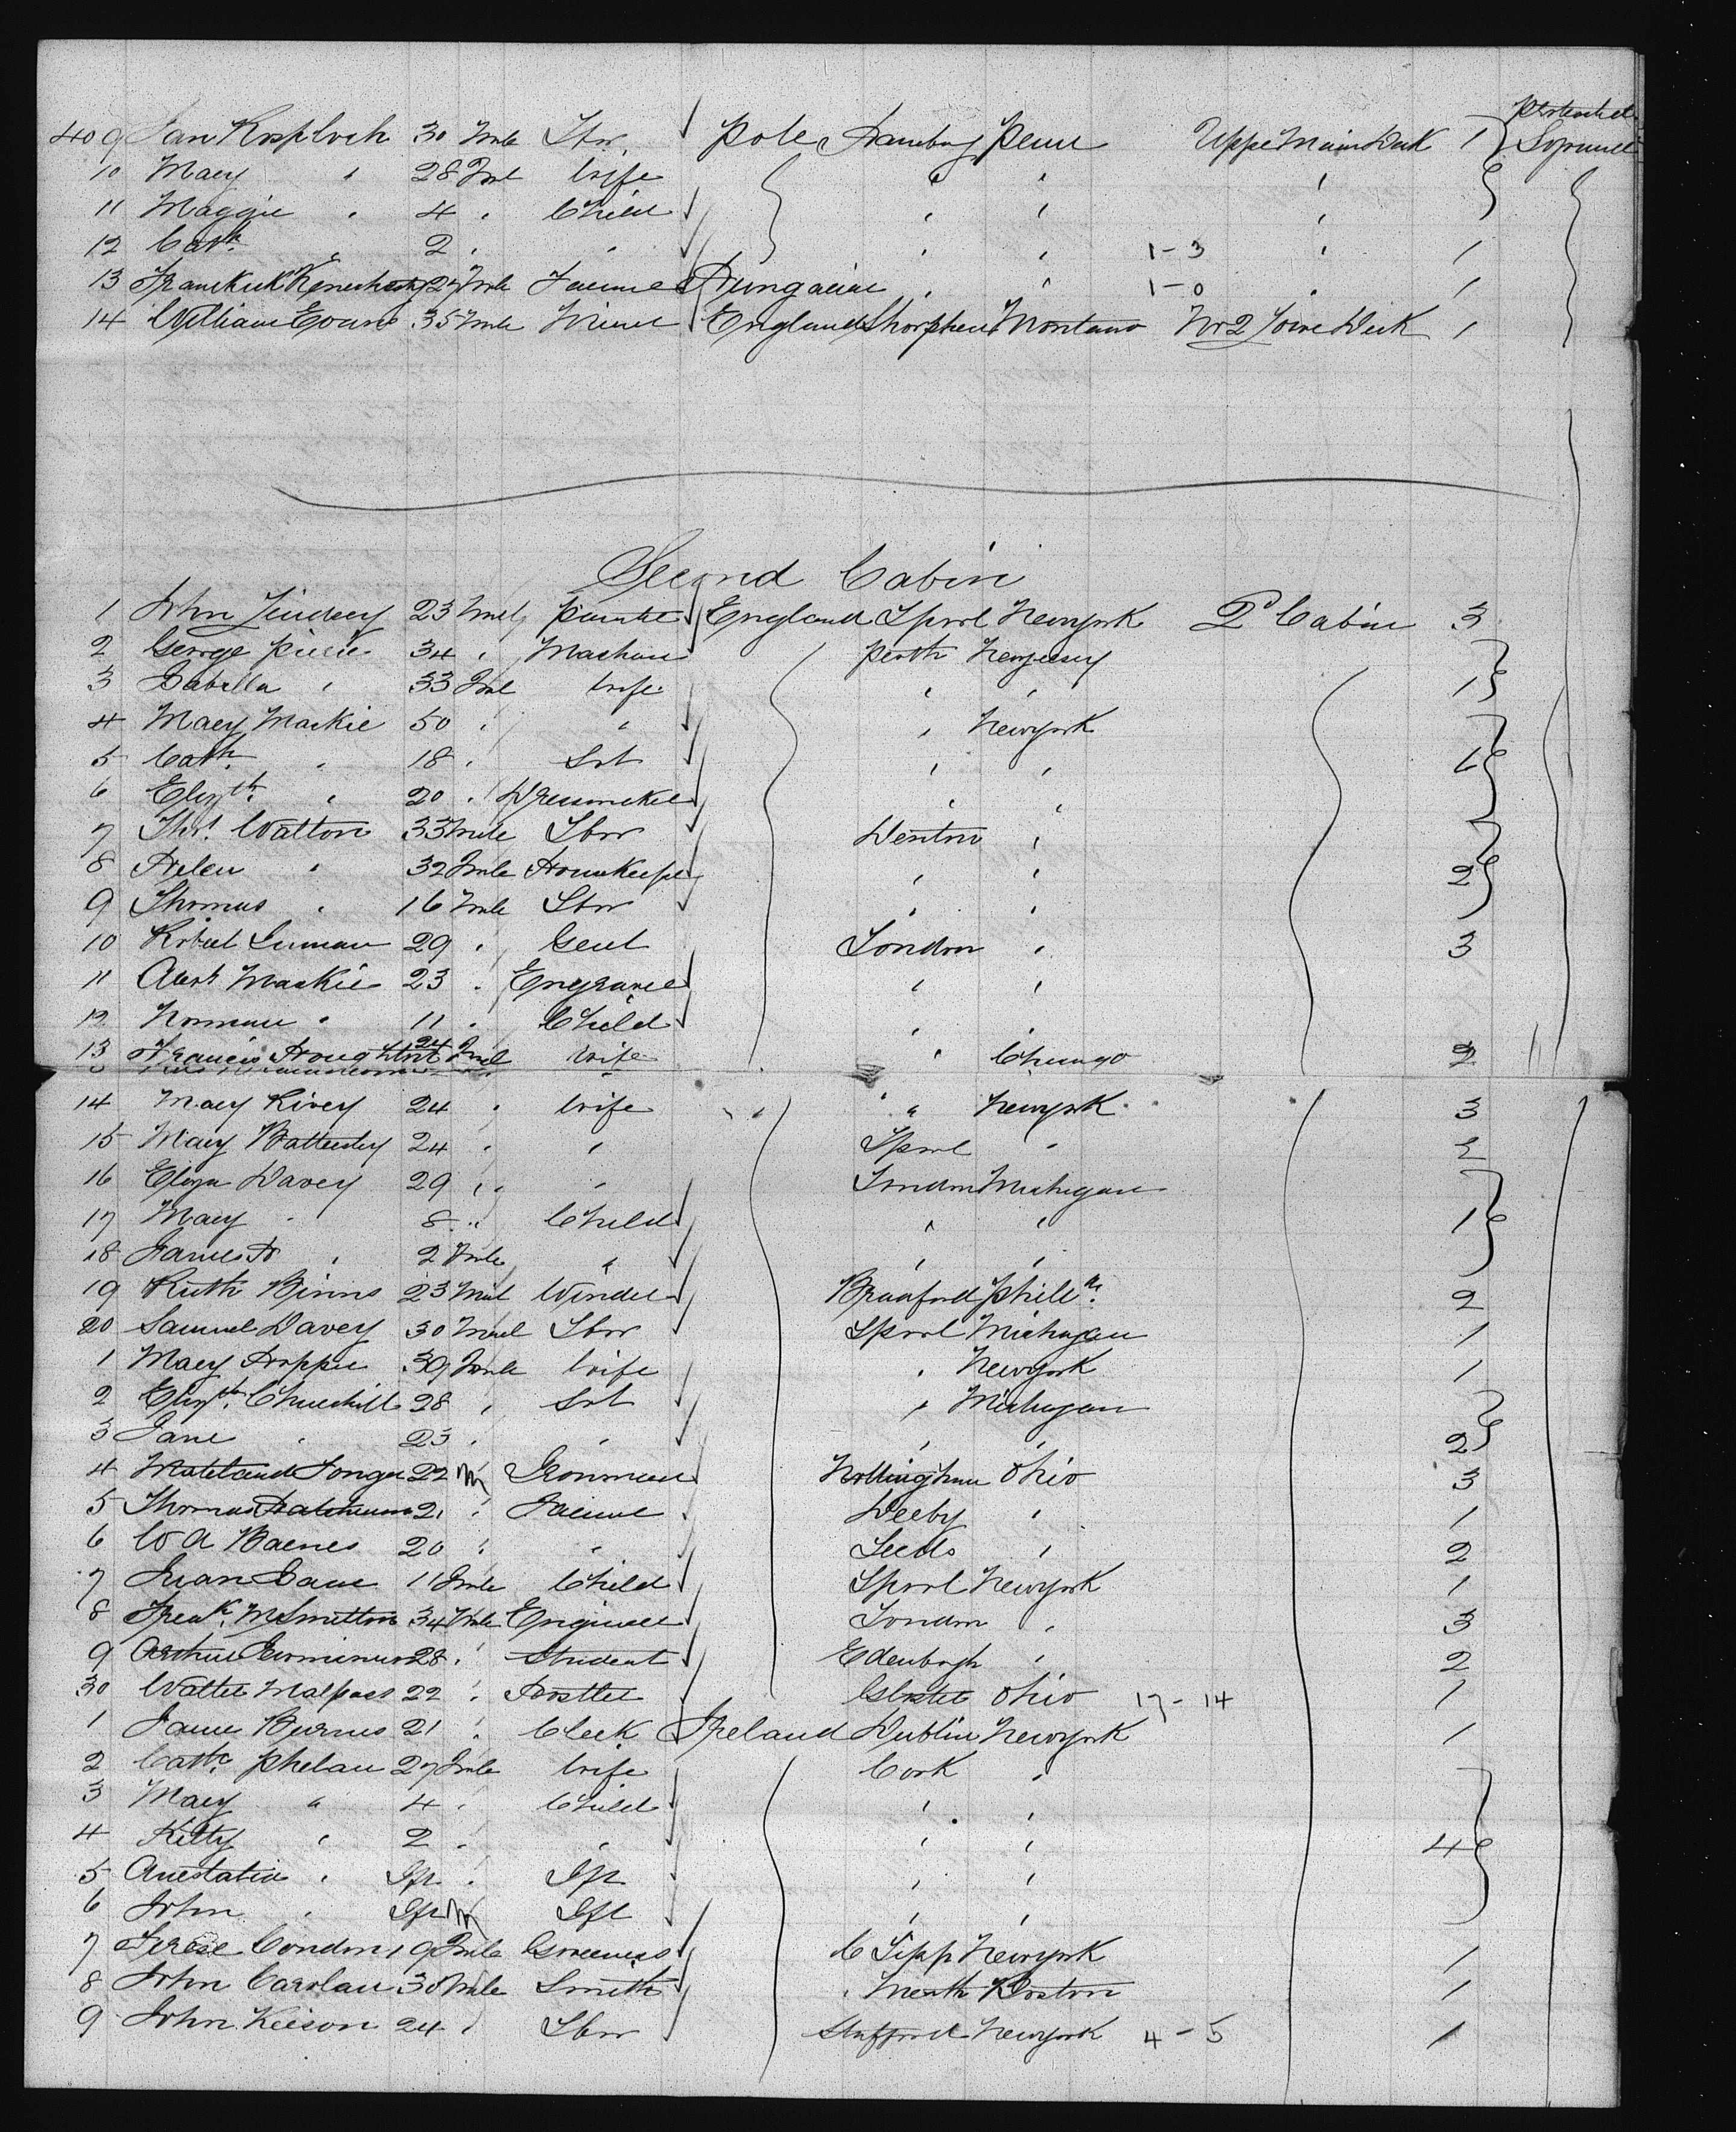 409 Jan 30 Male Lbr Pole Hamburg Penn Uppe Main Deck 1
10 Mary " 28 Fml Wife " " "
11 Maggie " 4 " Child " " "
12 Cath " 2 " " " " 1-3 " 1
13 27 Male Farmer Hungarian " " 1-0 " 1
14 William Evans 35 Male Miner England Montana No 2 Lowe Deck 1
Second Cabin
1 John Lindsey 23 Male Painter England Lpool Newyork 2d Cabin 3
2 George Pirie 34 " Perth Newjersey
3 Isabella " 33 Fml Wife " " 1
4 Mary Mackie 50 " " " Newyork
5 Cath " 18 " Svt " "
6 Elizth " 20 " Dressmaker " "
7 Thos Walton 33 Male Lbr Denton "
8 Helen " 32 Fmle Housekeeper " " 2
9 Thomas " 16 Male Lbr " "
10 Robert 29 " Gent London " 3
11 Mackie 23 " Engraver " "
12 Norman " 11 " Child " "
13 Francis Houghton 24 Fml Wife " Chicago 2
14 Mary Livey 24 " Wife " Newyork 3
15 Mary Battersby 24 " " Lpool " 2
16 Eliza Davey 29 " " London Michigan
17 Mary " 8 " Child " " 1
18 James H " 2 Male " " "
19 Ruth Binns 23 Winder Bradford Phila 2
20 Samuel Davey 30 Male Lbr Lpool Michigan 1
1 Mary Hoppe 39 Fmle Wife " Newyork 1
2 Elizth Churchill 28 " Svt " Michigan
3 Jane " 23 " " " " 2
4 22 M Ironman Nottingham Ohio 3
5 Thomas 21 " Farmer Derby " 1
6 W A Barnes 20 " " Leeds " 2
7 11 Fmle Child Lpool Newyork 1
8 Fredk 34 Male Engineer London " 3
9 Arthur 28 " Student Edenburgh " 2
30 Walter Malpass 22 " Hostler Gloster Ohio 17-14 1
1 James Burns 21 " Clerk Ireland Dublin Newyork 1
2 Cath Phelan 27 Fmle Wife Cork "
3 Mary " 4 " Child " "
4 Kitty " 2 " " " " 4
5 Anestatia " Inf " Inf " "
6 John " Inf M Inf " "
7 Terese Condon 19 Fmle Governess C Tipp Newyork 1
8 John Carolan 30 Male Smith " Meath Boston 1
9 John Keison 24 " Lbr Stafford Newyork 4-5 1